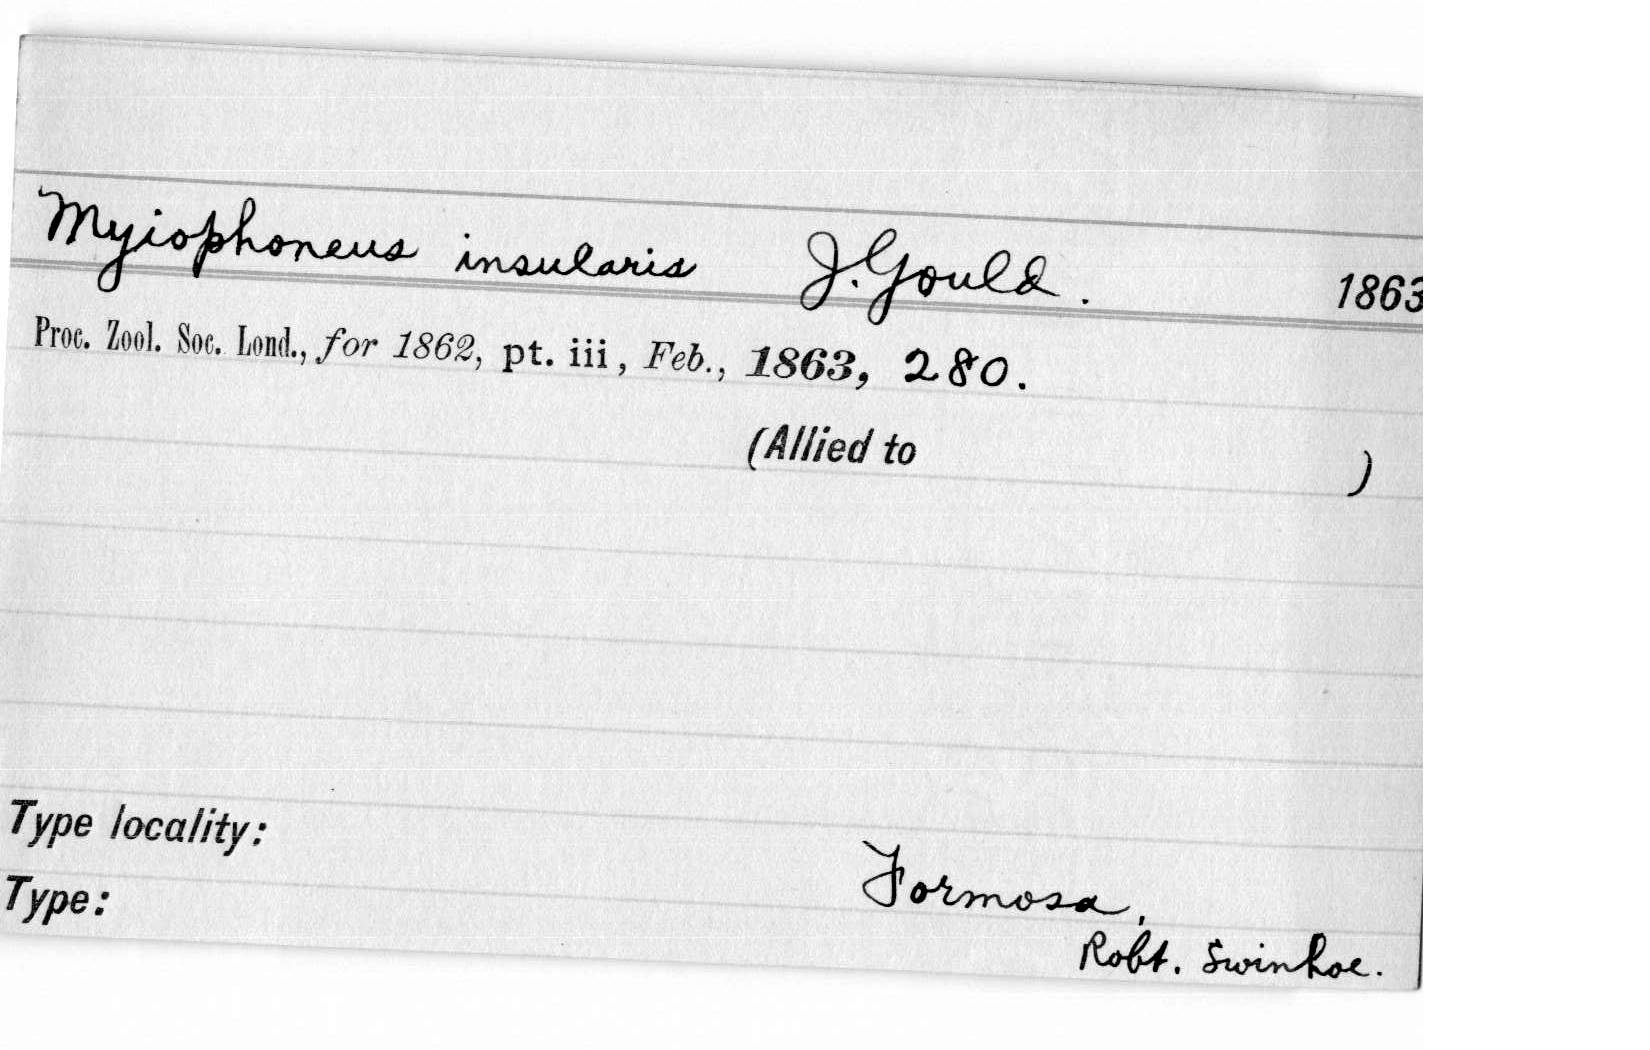 Myiophoneus insularis J. Gould. 1863
Proc. Zool. Soc. Lond., for 1862, pt. iii, Feb., 1863, 280.
(Allied to )
Type locality:
Formosa,
Type:
Robt. Swinhoe.